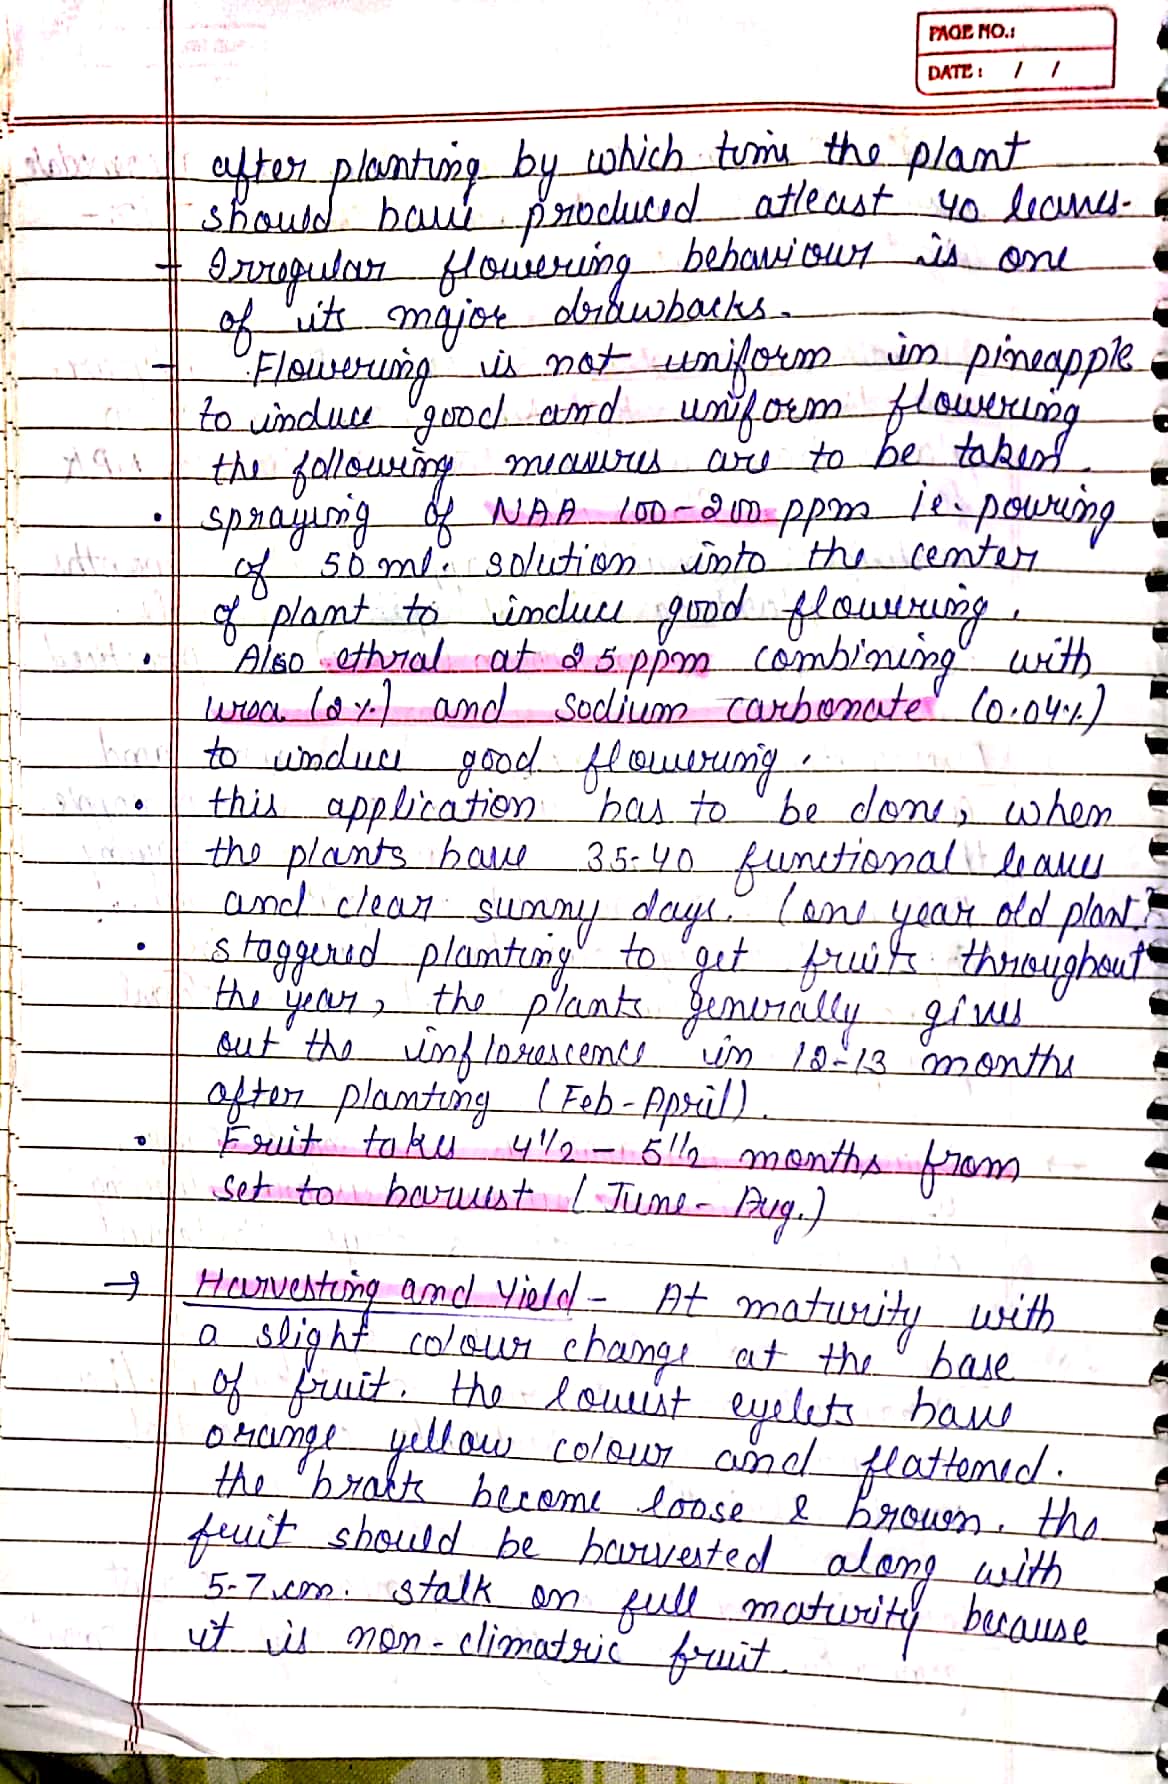 PAGE NO.:
DATE: / /
after planting by which time the plant
should have produced atleast 40 leaves.
- Irregular flowering behaviour is one
of its major drawbacks.
- Flowering is not uniform in pineapple
to induce good and uniform flowering
the following measures are to be taken.
• spraying of NAA 100-200 ppm ie. pouring
of 50 ml. solution into the center
of plant to induce good flowering.
• Also ethral at 25 ppm combining with
urea (2%) and sodium carbonate (0.04%)
to induce good flowering.
• this application has to be done, when
the plants have 35-40 functional leaves
and clear sunny days. (one year old plant)
• staggered planting to get fruits throughout
the year, the plants generally gives
out the inflorescence in 12-13 months
after planting (Feb-April).
• Fruit takes 4 1/2 - 5 1/2 months from
set to harvest (June - Aug.)
→ Harvesting and Yield - At maturity with
a slight colour change at the base
of fruit. the lowest eyelets have
orange yellow colour and flattened.
the bracts become loose & brown. the
fruit should be harvested along with
5-7 cm. stalk on full maturity because
it is non-climatric fruit.